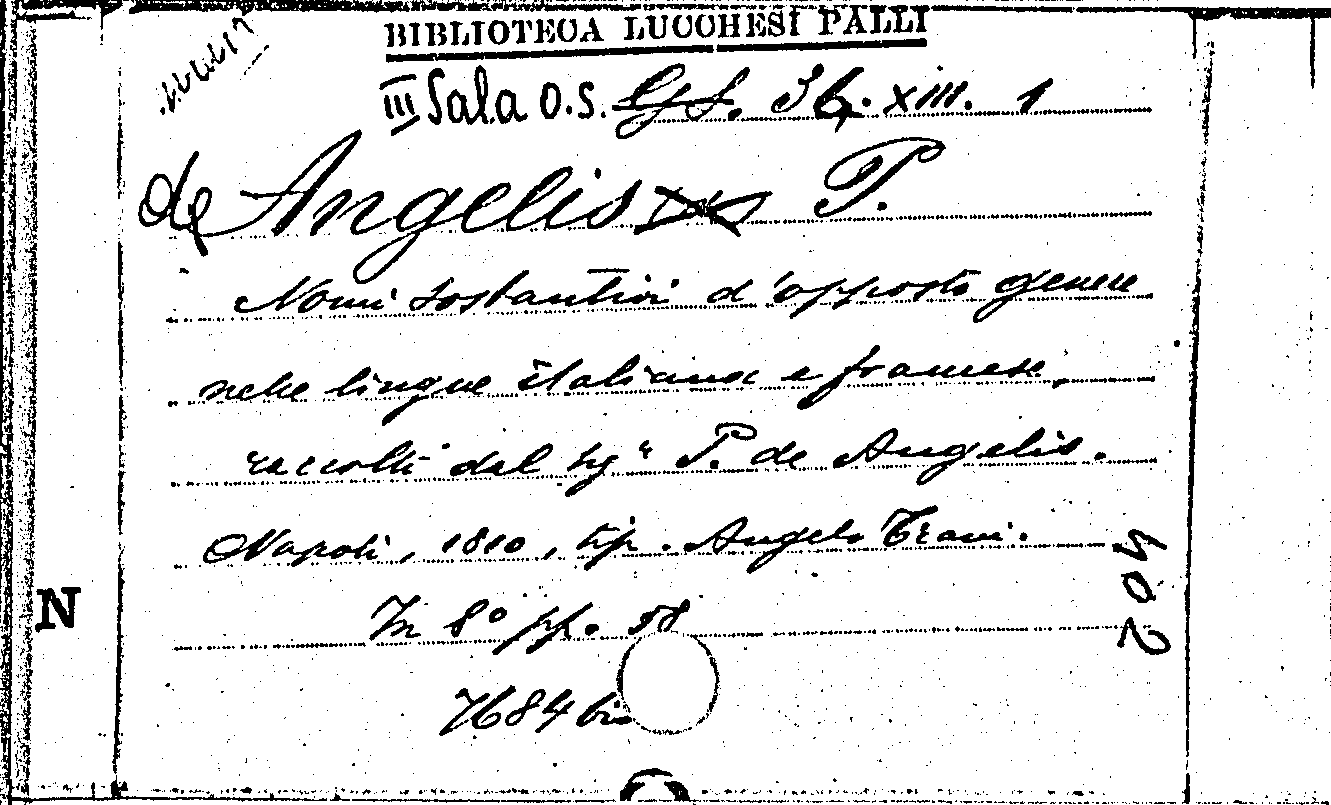 BIBLIOTECA LUCCHESI PALLI
III Sala O.S. 36. XIII. 1
de Angelis P.
Nomi sostantivi d'opposto genere
nelle lingue italiana e francese,
raccolti dal Sigr P. de Angelis.
Napoli, 1810, tip. Angelo Trani.
In 8º pp. 58
7684 bis
N
402